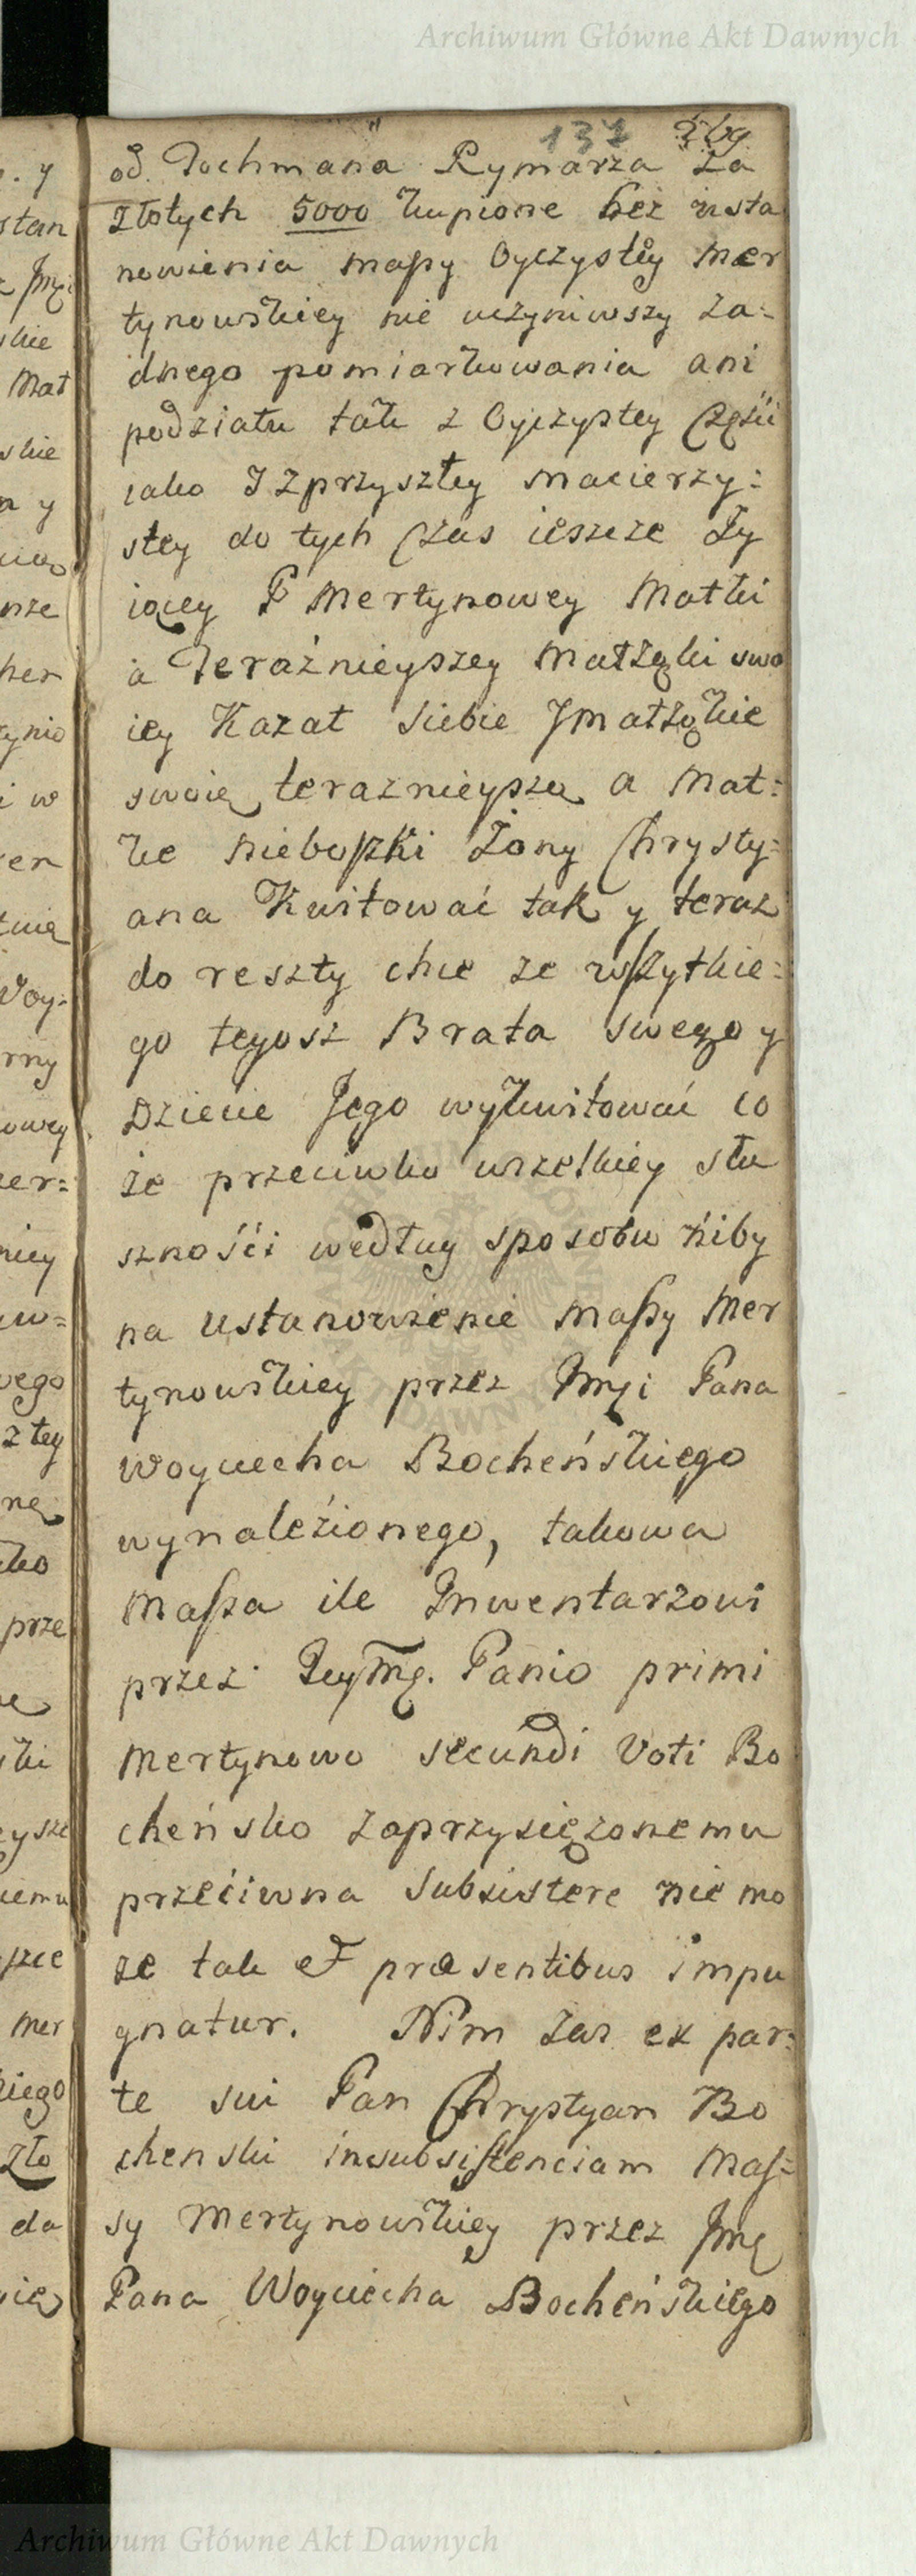 Archiwum Główne Akt Dawnych
137
od Tochmana Rymarza za
złotych 5000 kupione bez usta
nowienia massy Oyczystey Mer
tynowskiey nie uczyniwszy ża:
dnego pomiarkowania ani
podziału tak z Oyczystey Części
iako I z przyszłey macierzy:
stey do tych Czas ieszcze Ży
iącey P Mertynowey Matki
a Teraźnieyszey Małżąki swo
iey Kazał siebie J małżąkie
swoię teraznieyszą a Mat:
ke nieboszki Żony Chrysty:
ana Kwitować tak y teraz
do reszty chce ze wszytkie:
go tegosz Brata swego y
Dziecie Jego wykwitować co
że przeciwko wszelkiey słu
sznośći według sposobu niby
na ustanowienie massy Mer
tynowskiey przez Jmci Pana
Woyciecha Bocheńskiego
wynaleźionego, takowa
Massa ile Inwentarzowi
przez Jeymć. Panio primi
Mertynowo secundi Voti Bo
cheńsko zaprzysiężonemu
przeciwna subsistere nie mo
że tak et præsentibus impu
gnatur. Nim zas ex par:
te sui Pan Chrystyan Bo
chenski insubsistenciam Mas:
sy Mertynowskiey przez Jmę
Pana Woyciecha Bocheńskiego
Archiwum Główne Akt Dawnych